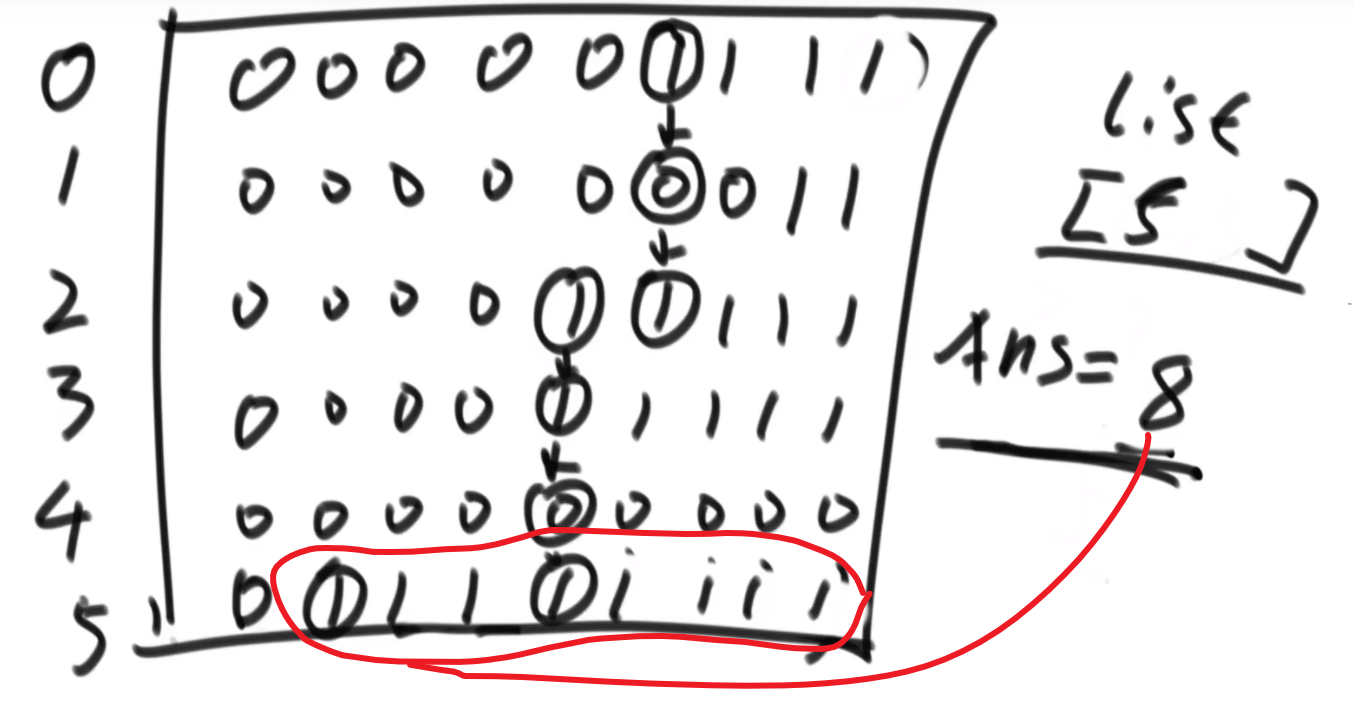 0 0 0 0 0 0 1 1 1 1 )
1 0 0 0 0 0 0 0 1 1
2 0 0 0 0 1 1 1 1 1
3 0 0 0 0 1 1 1 1 1
4 0 0 0 0 0 0 0 0 0
5 0 1 1 1 1 i i i i
list
[5 ]
Ans=8